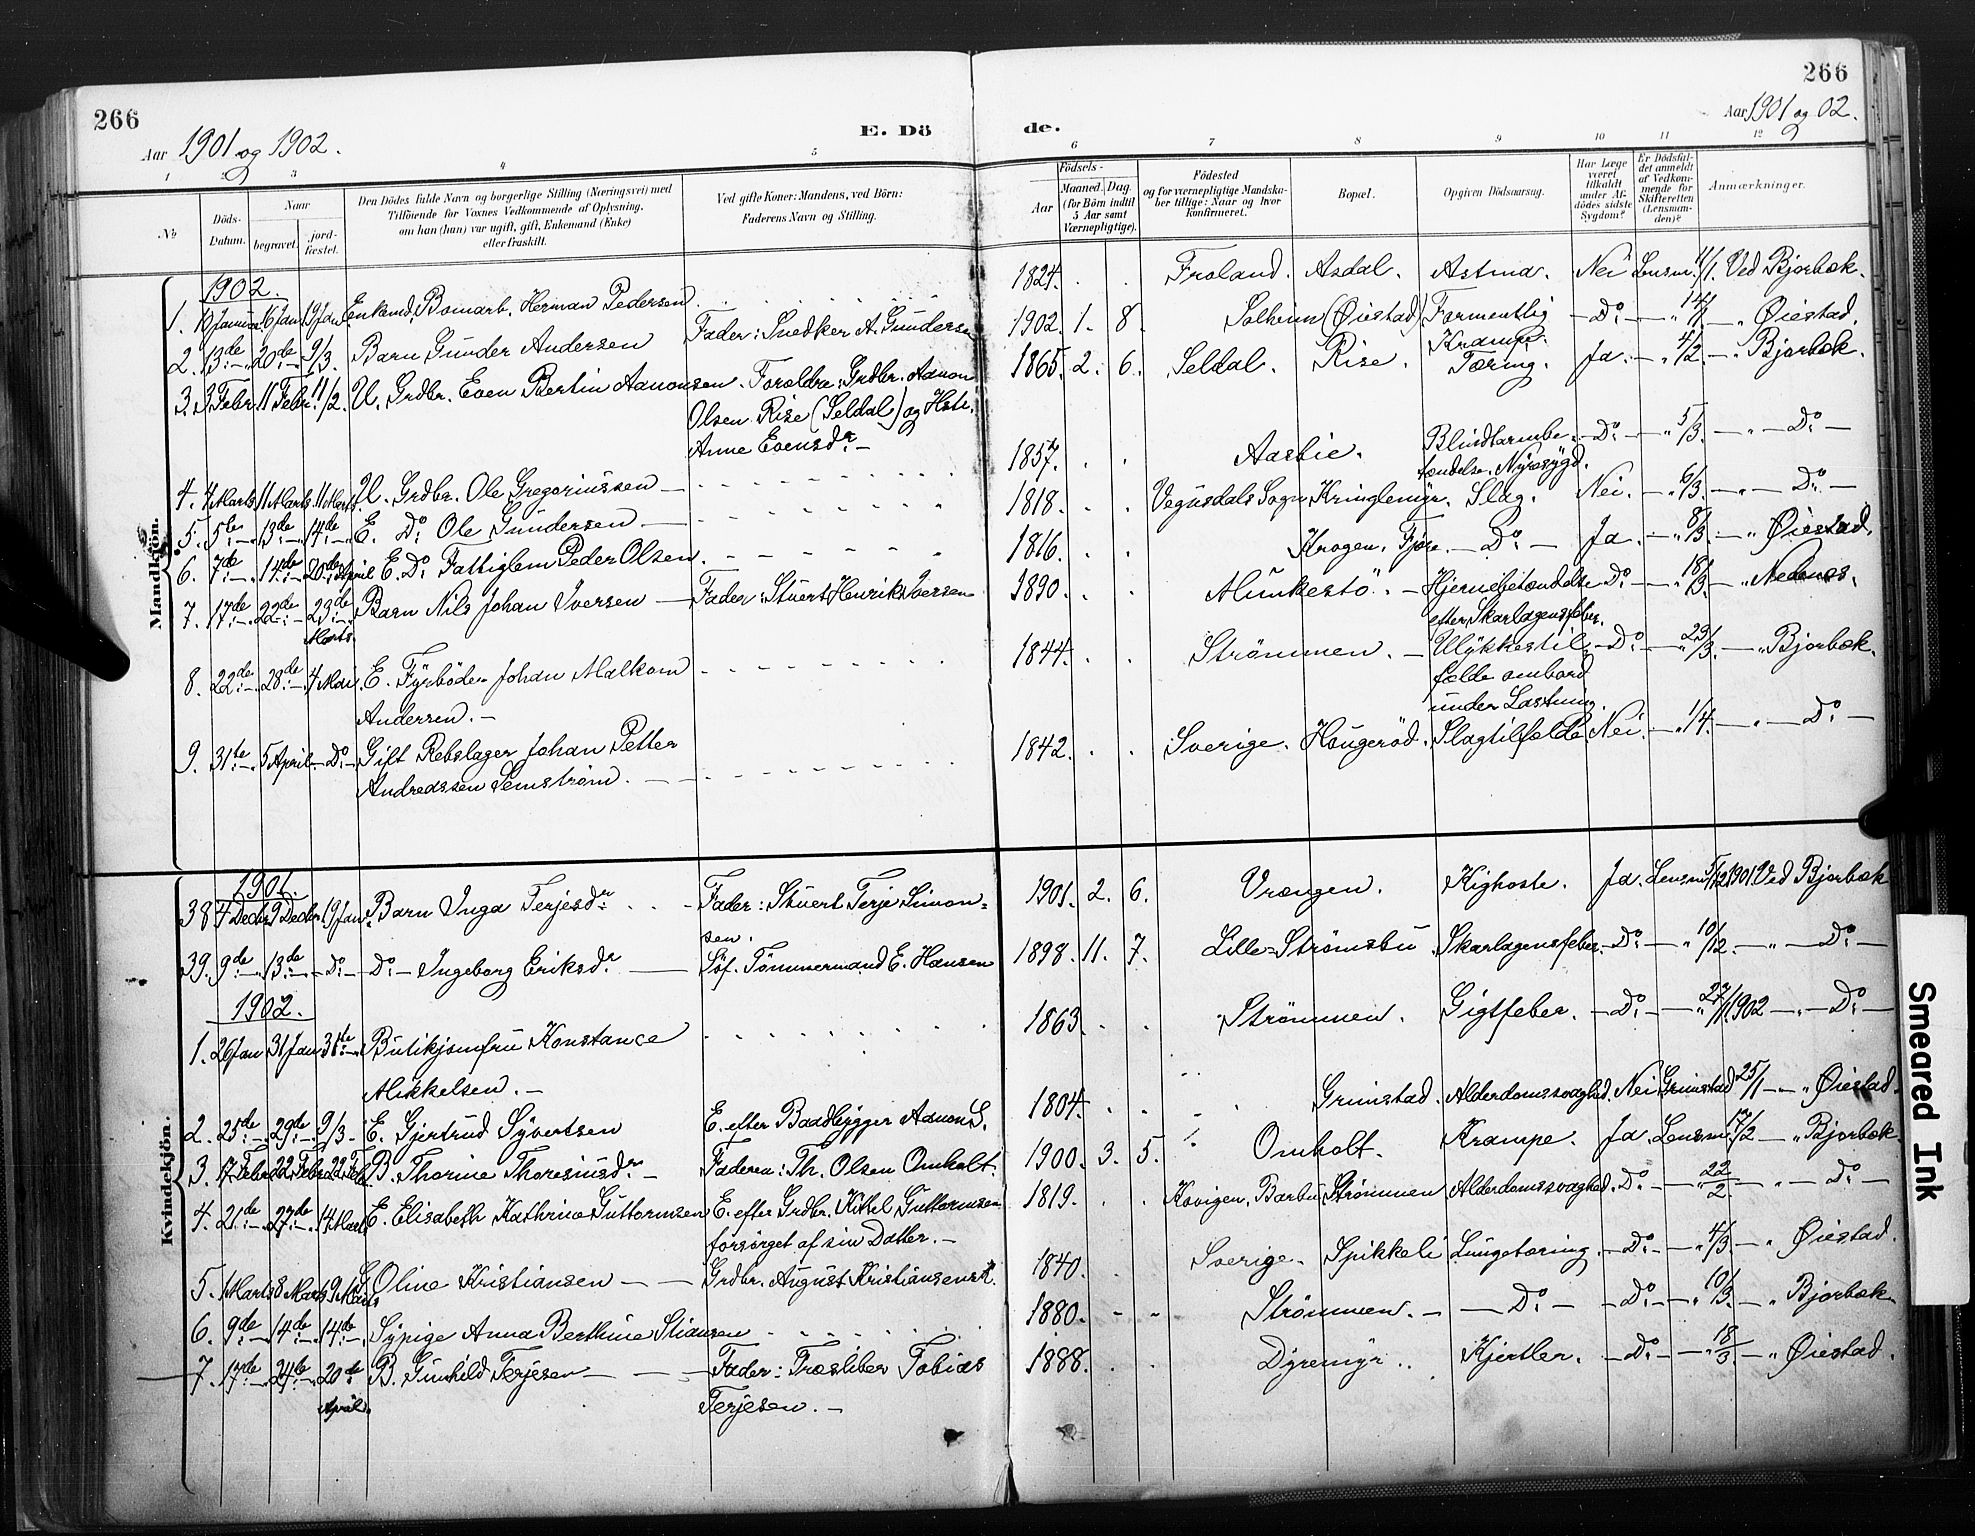 266
266
Aar 1901 og 1902.
E. Dö
de.
Aar 1901 og 02.
1 2 3 4 5 6 7 8 9 10 11 12
No
Döds-
Datum.
Naar
begravet.
jord-
fæstet.
Den Dödes fulde Navn og borgerlige Stilling (Næringsvei) med
Tilföiende for Voxnes Vedkommende af Oplysning,
om han (hun) var ugift, gift, Enkemand (Enke)
eller fraskilt.
Ved gifte Koner: Mandens, ved Börn:
Faderens Navn og Stilling.
Födsels-
Aar
Maaned. Dag.
(for Börn indtil
5 Aar samt
Værnepligtige).
Födested
og for værnepligtige Mandska-
ber tillige: Naar og hvor
konfirmeret.
Bopæl.
Opgiven Dödsaarsag.
Har Læge
været
tilkaldt
under Af-
dödes sidste
Sygdom?
Er Dödsfal-
det anmeldt
af Vedkom-
mende for
Skifteretten
(Lensman-
den)?
Anmærkninger.
Mandkjön.
1902.
1. 10 Januar. 16 Jan. 19 Jan. Enkemd. Bomarb. Herman Pedersen. 1824. Froland. Asdal. Astma. Nei Lensm. 11/1. Ved Bjorbæk.
2. 13de 20de 9/3. Barn Gunder Andersen Fader: Snedker A. Gundersen 1902. 1. 8. Solheim (Øiestad) Formentlig Do 14/1 Øiestad.
Krampe.
3. 3 Febr. 11 Febr. 11/2. U. Grdbr. Even Bertin Aanonsen. Forældre: Grdbr. Aanon 1865. 2. 6. Seldal. Rise. Tæring. Ja. 4/2 Bjorbæk.
Olsen Rise (Seldal) og Hste.
Anne Evensdr.
4. 4 Marts. 11 Marts. 11 Marts. U. Grdbr. Ole Gregoriussen 1857. Aasbie. Blindtarmbe- Do 5/3. Do
tændelse. Nyresygd.
5. 5te 13de 14de E. Do Ole Gundersen. 1818. Vegusdals Sogn Kringlemyr. Slag. Nei. 6/3. Do
6. 7de 14de 20de April E. Do Fattiglem Peder Olsen. 1816. Krogen. Fjære. Do Ja. 8/3 Øiestad.
7. 17de 22de 23de Barn Nils Johan Iversen Fader: Stuert Henrik Iversen 1890. Munkestö. Hjernebetændelse Do 18/3. Nedenes.
Marts.
efter Skarlagensfeber.
8. 22de 28de 4 Mai. E. Fyrböder Johan Malkom 1844. Strömmen. Ulykkestil- Do 23/3. Bjorbæk.
Andersen.
fælde ombord
under Lastning.
9. 31te 5 April. Do Gift Rebslager Johan Petter 1842. Sverige. Haugeröd. Slagtilfælde. Nei. 1/4. Do
Andreassen Semström.
Kvindekjön.
1901.
38 4 Decbr. 9 Decbr. 19 Jan. Barn Inga Terjesdr. Fader: Stuert Terje Simon- 1901. 2. 6. Vrængen. Kighoste. Ja. Lensm. 5/12 1901. Ved Bjorbæk
sen.
39. 9de 13de Do Do Ingeborg Eriksdr. Söf. Tömmermand E. Hansen 1898. 11. 7. Lille-Strömsbu Skarlagensfeber. Do 10/12. Do
1902.
1. 26 Jan 31 Jan 31te Butikjomfru Konstance 1863. Strömmen. Gigtfeber. Do 27/1 1902 Do
Mikkelsen.
2. 25de 29de 9/3 E. Gjertrud Syvertsen E. efter Baadbygger Aanon S. 1804. Grimstad. Alderdomssvaghed. Nei Grimstad 25/1 Øiestad.
3. 17 Febr. 22 Febr. 22 Feb. B. Thorine Thoresiusdr. Faderen: Th. Olsen Omholt. 1900. 3. 5. Omholt. Krampe. Ja. Lensm. 17/2 Bjorbæk
4. 21de 27de 14 Marts E. Elisabeth Kathrine Guttormsen E. efter Grdbr. Kittel Guttormsen 1819. Kovigen. Barbu Strömmen Alderdomssvaghed. Do 22/2. Do
forsörget af sin Datter.
5. 1 Marts 8 Marts 9 Marts Oline Kristiansen Grdbr. August Kristiansens 1840. Sverige. Spikkeli Lungetæring. Do 4/3. Øiestad.
6. 9de 14de 14de Sypige Anna Berthine Stiansen 1880. Strömmen. Do Do 10/3. Bjorbæk
7. 17de 24de 20de B. Gunhild Terjesen Fader: Træsliber Tobias 1888. Dyremyr. Kjertler. Do 18/3 Øiestad.
April.
Terjesen.
Smeared Ink